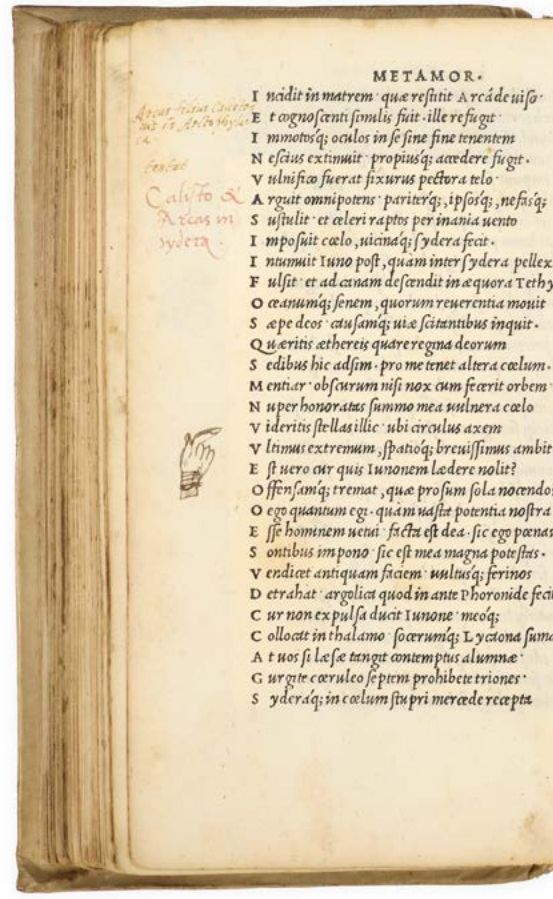 METAMOR.
Incidit in matrem· quæ restitit Arcáde uiso·
Et cognoscenti similis fuit·ille refugit·
Immotosq; oculos in se sine fine tenentem
Nescius extimuit·propiusq; accedere fugit·
Vulnifico fuerat fixurus pectora telo·
Arguit omnipotens·pariterq;, ipsosq;, nefasq;
Sustulit·et celeri raptos per inania uento
Imposuit cœlo, uicinaq; sydera fecit·
Intumuit Iuno post, quam inter sydera pellex
Fulsit·et ad canam descendit in æquora Tethy
Oceanumq; senem, quorum reuerentia mouit
Sæpe deos·causamq; uiæ scitantibus inquit·
Quæritis æthereis quare regina deorum
Sedibus hic adsim·pro me tenet altera cœlum·
Mentiar·obscurum nisi nox cum fecerit orbem·
Nuper honoratas summo mea uulnera cœlo
Videritis stellas illic·ubi circulus axem
Vltimus extremum, spatioq; breuissimus ambit
Est uero cur quis Iunonem lædere nolit?
Offensamq; tremat, quæ prosum sola nocendo
O ego quantum egi·quàm uasta potentia nostra
Esse hominem uetui·facta est dea·sic ego pœnas
Sontibus impono·sic est mea magna potestas·
Vendicet antiquam faciem·uultusq; ferinos
Detrahat·argolica quod in ante Phoronide fecit
Cur non expulsa ducit Iunone·meoq;
Collocat in thalamo·socerumq; Lycaona suma
At uos si læsæ tangit contemptus alumnæ·
Gurgite cœruleo septem prohibete triones·
Syderaq; in cœlum stupri mercede recepta
Arcas filius Calisto
Calisto &
Arcas in
sydera.